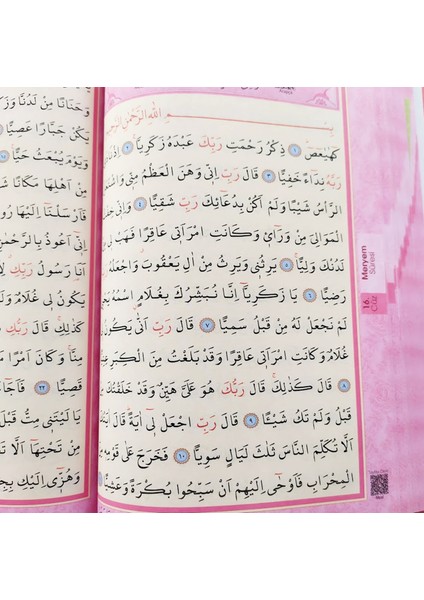 بِسْمِ اللّٰهِ الرَّحْمٰنِ الرَّحِيمِ
كٓهٰيٰعٓصٓ ١ ذِكْرُ رَحْمَتِ رَبِّكَ عَبْدَهُ زَكَرِيَّا ٢ اِذْ نَادٰى
رَبَّهُ نِدَٓاءً خَفِيًّا ٣ قَالَ رَبِّ اِنّ۪ي وَهَنَ الْعَظْمُ مِنّ۪ي وَاشْتَعَلَ
الرَّأْسُ شَيْبًا وَلَمْ اَكُنْ بِدُعَٓائِكَ رَبِّ شَقِيًّا ٤ وَاِنّ۪ي خِفْتُ
الْمَوَالِيَ مِنْ وَرَٓاء۪ي وَكَانَتِ امْرَاَت۪ي عَاقِرًا فَهَبْ ل۪ي مِنْ
لَدُنْكَ وَلِيًّا ٥ يَرِثُن۪ي وَيَرِثُ مِنْ اٰلِ يَعْقُوبَ وَاجْعَلْهُ رَبِّ
رَضِيًّا ٦ يَا زَكَرِيَّٓا اِنَّا نُبَشِّرُكَ بِغُلَامٍ اسْمُهُ يَحْيٰى
لَمْ نَجْعَلْ لَهُ مِنْ قَبْلُ سَمِيًّا ٧ قَالَ رَبِّ اَنّٰى يَكُونُ ل۪ي
غُلَامٌ وَكَانَتِ امْرَاَت۪ي عَاقِرًا وَقَدْ بَلَغْتُ مِنَ الْكِبَرِ عِتِيًّا
٨ قَالَ كَذٰلِكَ قَالَ رَبُّكَ هُوَ عَلَيَّ هَيِّنٌ وَقَدْ خَلَقْتُكَ مِنْ
قَبْلُ وَلَمْ تَكُ شَيْـًٔا ٩ قَالَ رَبِّ اجْعَلْ ل۪ٓي اٰيَةً قَالَ اٰيَتُكَ
اَلَّا تُكَلِّمَ النَّاسَ ثَلٰثَ لَيَالٍ سَوِيًّا ١٠ فَخَرَجَ عَلٰى قَوْمِه۪ مِنَ
الْمِحْرَابِ فَاَوْحٰٓى اِلَيْهِمْ اَنْ سَبِّحُوا بُكْرَةً وَعَشِيًّا
Meryem
Sûresi
16.
Cüz
وَحَنَانًا مِنْ لَدُنَّا وَزَكٰ
يَكُنْ جَبَّارًا عَصِيًّا
وَيَوْمَ يُبْعَثُ حَيًّا
مِنْ اَهْلِهَا مَكَانًا شَ
فَاَرْسَلْنَٓا اِلَيْهَا رُو
اِنّ۪ٓي اَعُوذُ بِالرَّحْمٰنِ
اَنَا رَسُولُ رَبِّكِ
يَكُونُ ل۪ي غُلَامٌ وَلَمْ
كَذٰلِكِ قَالَ رَبُّكِ
مِنَّا وَكَانَ اَمْرًا مَ
قَصِيًّا ٢٢ فَاَجَٓاءَ
يَا لَيْتَن۪ي مِتُّ قَبْلَ
مِنْ تَحْتِهَٓا اَلَّا
وَهُزّ۪ٓي اِلَيْكِ بِجِ